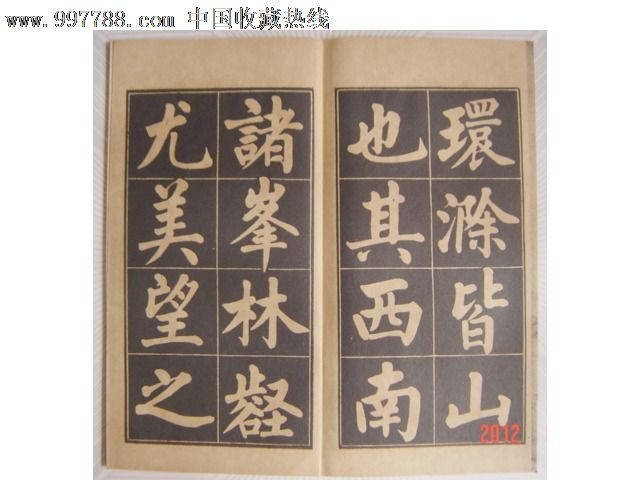 www.997788.com 中国收藏热线
環滁皆山
也其西南
諸峯林壑
尤美望之
2012